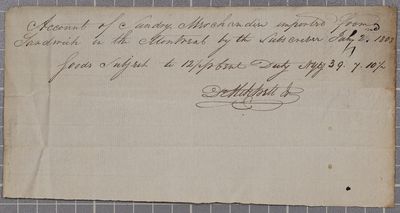 Account of Sundry Merchandise imported from
Sandwich in the Montreal by the Subscriber July 2nd 1803
Goods Subject to 12½ p Cent Duty NYC 39. 7. 10½